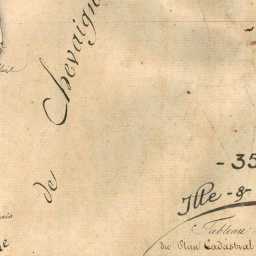 de Chevaign
- 35
Ille-&-
Tableau
du Plan Cadastral